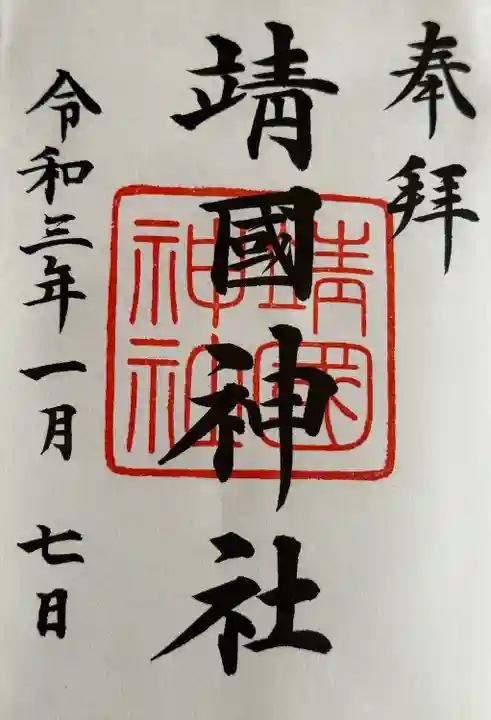 奉拜
靖國神社
靖國
神社
令和三年一月七日